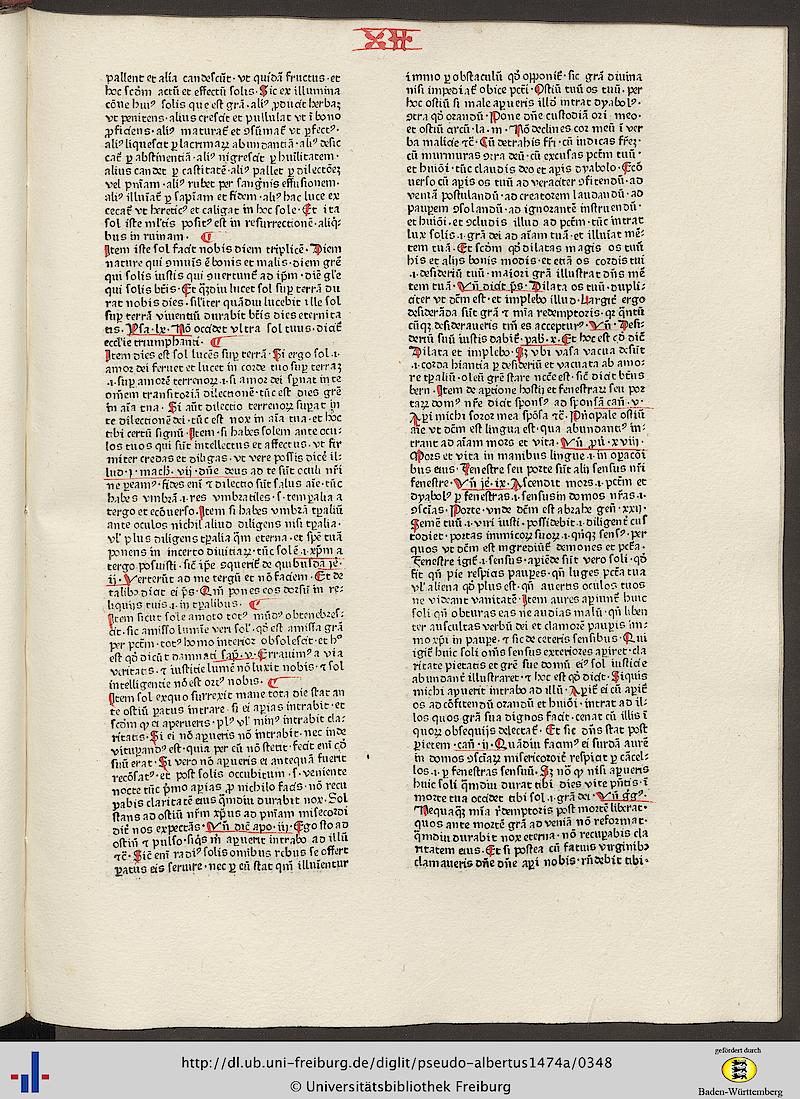 XII
pallent et alia candescūt · vt quidā fructus · et
hoc scḋm actū et effectū solis · Sic ex illumina
cōne huiꝰ solis que est grā · aliꝰ ꝓducit herbaȝ
vt penitens · alius crescit et pullulat vt ī bono
ꝓficiens · aliꝰ maturat̄ et ↄsūmat̄ vt ꝑfectꝰ ·
aliꝰ liquescit ꝑ lacrimaꝝ abundantiā · aliꝰ desic
cat̄ ꝑ abstinentiā · aliꝰ nigrescit ꝑ huīlitatem ·
alius candet ꝑ castitatē · aliꝰ pallet ꝑ dilectōeȝ
vel pn̄iam · aliꝰ rubet per sang̃nis effusionem ·
aliꝰ illuīat̄ ꝑ sapīam et fidem · aliꝰ hac luce ex
cecat̄ vt heretiꝰ et caligat in hoc sole · Et ita
sol iste ml̄tis positꝰ est in resurrectionē · aliq̄
bus in ruinam ·
Item iste sol facit nobis diem triplicē · Diem
nature qui ↄmuīs ē bonis et malis · diem grē
qui solis iustis qui ↄuertunt̄ ad ip̄m · diē gl̄e
qui solis bt̄is · Et q̄mdiu lucet sol suꝑ terrā du
rat nobis dies · sil̄iter quādiu lucebit ille sol
suꝑ terrā viuentiū durabit bt̄is dies eternita
tis · Ysa · lx · Nō occidet vltra sol tuus · dicit̄
eccl̄ie triumphanti ·
Item dies est sol lucēs suꝑ terrā · Si ergo sol .i.
amor dei feruet et lucet in corde tuo suꝑ terrā
.i. suꝑ amorē terrenoꝝ .i. si amor dei ꝑnat in te
om̄em transitoriā dilectionē · tūc est dies grē
in aīa tua · Si aūt dilectio terrenoꝝ suꝑat in
te dilectionē dei · tūc est nox in aīa tua · et hoc
tibi certū signū · Item si habes solem ante ocu
los tuos qui sūt intellectus et affectus · vt fir
miter credas et diligas · vt vere possis dicē il
lud · i · mach · vij · dn̄e deus ad te sūt oculi nr̄i
ne ꝑeamꝰ · fides enī ⁊ dilectio sūt salus aīe · tūc
habes vmbrā .i. res vmbratiles · s · temꝑalia a
tergo et ecōuerso · Item si habes vmbrā tꝑaliū
ante oculos nichil aliud diligens nisi tꝑalia ·
vl̄ plus diligens tꝑalia q̄m eterna · et spē tuā
ponens in incerto diuitiaꝝ · tūc solē .i. xp̄m a
tergo posuisti · sic̄ ip̄e ↄquerit̄ de quibusdā je ·
ij · Verterūt ad me tergū et nō faciem · Et de
talibꝰ dicit ei ps̄ · Qm̄ pones eos dorsū in re
liquijs tuis .i. in tꝑalibus ·
Item sicut sole amoto totꝰ mūdꝰ obtenebres
cit · sic amisso lumīe veri solꝭ · qḋ est amissa grā
per pctm̄ · totꝰ homo interior obsolescit · et hꝰ
est qḋ dicūt damnati sap̄ · v · Errauimꝰ a via
veritatis · ⁊ iusticie lumē nō luxit nobis · ⁊ sol
intelligentie nō est ortꝰ nobis ·
Item sol exquo surrexit mane tota die stat an
te ostiū ꝑatus intrare · si ei aꝑias intrabit · et
scḋm qḋ ei aperueris · plꝰ vl̄ minꝰ intrabit cla
ritatis · Si ei nō aꝑueris nō intrabit · nec inde
vituꝑandꝰ est · quia per eū nō stetit · fecit enī qḋ
suū erat · Si vero nō aꝑueris ei antequā fuerit
recōsatꝰ · et post solis occubitum · s · veniente
nocte tūc ṗmo aꝑias ꝓ nichilo facis · nō recu
ꝑabis claritatē eius q̄mdiu durabit nox · Sol
stans ad ostiū nr̄m xp̄us ad pn̄iam misericordi
diē nos expectās · Vn̄ dic̄ apo · iij · Ego sto ad
ostiū ⁊ pulso · siq̄s m̄ aꝑuerit intrabo ad illū
⁊c̄ · Sic̄ enī radiꝰ solis omnibus rebus se offert
ꝑatus eis seruire · nec ꝑ eū stat qm̄ illuīentur
immo ꝑ obstaculū qḋ opponit̄ · sic grā diuina
nisi impediat̄ obice pctī · Ostiū tuū os tuū · per
hoc ostiū si male aꝑueris illō intrat dyabolꝰ ·
ↄtra qḋ orandū · Pone dn̄e custodiā ori meo ·
et ostiū circū · la · m · Nō declines cor meū ī ver
ba malicie ⁊c̄ · Cū detrahis fr̄i · cū iudicas fr̄eȝ ·
cū murmuras ↄtra deū · cū excusas pctm̄ tuū ·
et huiōi · tūc claudis deo et aꝑis dyabolo · Ecō
uerso cū aꝑis os tuū ad veraciter ↄfitendū · ad
veniā postulandū · ad creatorem laudandū · ad
pauꝑem ↄsolandū · ad ignorantē instruendū ·
et huiōi · et ↄcludis illud ad pctm̄ · tūc intrat
lux solis .i. grā dei ad aīam tuā · et illuīat mē
tem tuā · Et scḋm qḋ dilatas magis os tuū
his et alijs bonis modis · et etiā os cordis tui
.i. desideriū tuū · maiori grā illustrat dn̄s mē
tem tuā · Vn̄ dicit ps̄ · Dilata os tuū · dupli
citer vt dc̄m est · et implebo illud · Largit̄ ergo
desiderāda sūt grā ⁊ mīa redemptoris · qꝛ q̄ntū
cūqȝ desideraueris tm̄ es accepturꝰ · Vn̄ · Desi
deriū suū iustis dabit̄ · pab̄ · x · Et hoc est qḋ dic̄
Dilata et implebo · Sȝ vbi vasa vacua desūt
.i. corda hiantia ꝑ desideriū et vacuata ab amo
re tꝑaliū · oleū grē stare necc̄e est · sic̄ dicit btūs
bern̄ · Item de aꝑtione hostij et fenestraꝝ seu por
taꝝ domꝰ nr̄e dicit spons̄ꝰ ad sponsā cañ · v ·
Aꝑi michi soror mea spōsa ⁊c̄ · Prīcipale ostiū
aīe vt dc̄m est lingua est · qua abundantiꝰ in
trant ad aīam mors et vita · Vn̄ ꝑū · xviij ·
Mors et vita in manibus lingue .i. in oꝑacōi
bus eius · Fenestre seu porte sūt alij sensus nr̄i
fenestre · Vn̄ je · ix · Ascendit mors .i. pctm̄ et
dyabolꝰ ꝑ fenestras .i. sensus in domos nr̄as .i.
ↄscīas · Porte · vnde dc̄m est abrahe gen̄ · xxij ·
Semē tuū .i. viri iusti · possidebit .i. diligent̄ cus
todiet · portas inimicoꝝ suoꝝ .i. qn̄qȝ sensꝰ · per
quos vt dc̄m est ingrediūt̄ demones et pctā ·
Fenestre igit̄ .i. sensus · aꝑiēde sūt vero soli · qḋ
fit qn̄ pie respicis pauꝑes · qn̄ luges pctā tua
vl̄ aliena qḋ plus est · qn̄ auertis oculos tuos
ne videant vanitatē · Item aures aꝑiunt̄ huic
soli qn̄ obturas eas ne audias malū · qn̄ liben
ter auscultas verbū dei et clamorē pauꝑis im
mo xp̄i in pauꝑe · ⁊ sic de ceteris sensibus · Qui
igit̄ huic soli om̄s sensus exteriores aꝑiret · cla
ritate pietatis et grē sue domū eiꝰ sol iusticie
abundant̄ illustraret · ⁊ hoc est qḋ dicit · Siquis
michi aꝑuerit intrabo ad illū · Aꝑit̄ ei cū aꝑit̄
os ad cōfitendū orandū et huiōi · intrat ad il
los quos grā sua dignos facit · cenat cū illis ī
quoꝝ obsequijs delectat̄ · Et sic dn̄s stat post
ꝑietem · cañ · ij · Quādiu facimꝰ ei surdā aurē
in domos ↄsciaꝝ misericorditer̄ respicit ꝑ cācel
los .i. ꝑ fenestras sensuū · Sȝ nō qḋ nisi aꝑueris
huic soli q̄mdiu durat tibi dies vite pn̄tis ī
morte tua occidet tibi sol .i. grā dei · Vn̄ g̃gꝰ ·
Nequaqȝ mīa redemptoris post mortē liberat̄ ·
quos ante mortē grā ad veniā nō reformat ·
q̄mdiu durabit nox eterna · nō recuꝑabis cla
ritatem eius · Et si postea cū fatuis virginibꝰ
clamaueris dn̄e dn̄e aꝑi nobis · rn̄debit tibi ·
http://dl.ub.uni-freiburg.de/diglit/pseudo-albertus1474a/0348
© Universitätsbibliothek Freiburg
gefördert durch
Baden-Württemberg